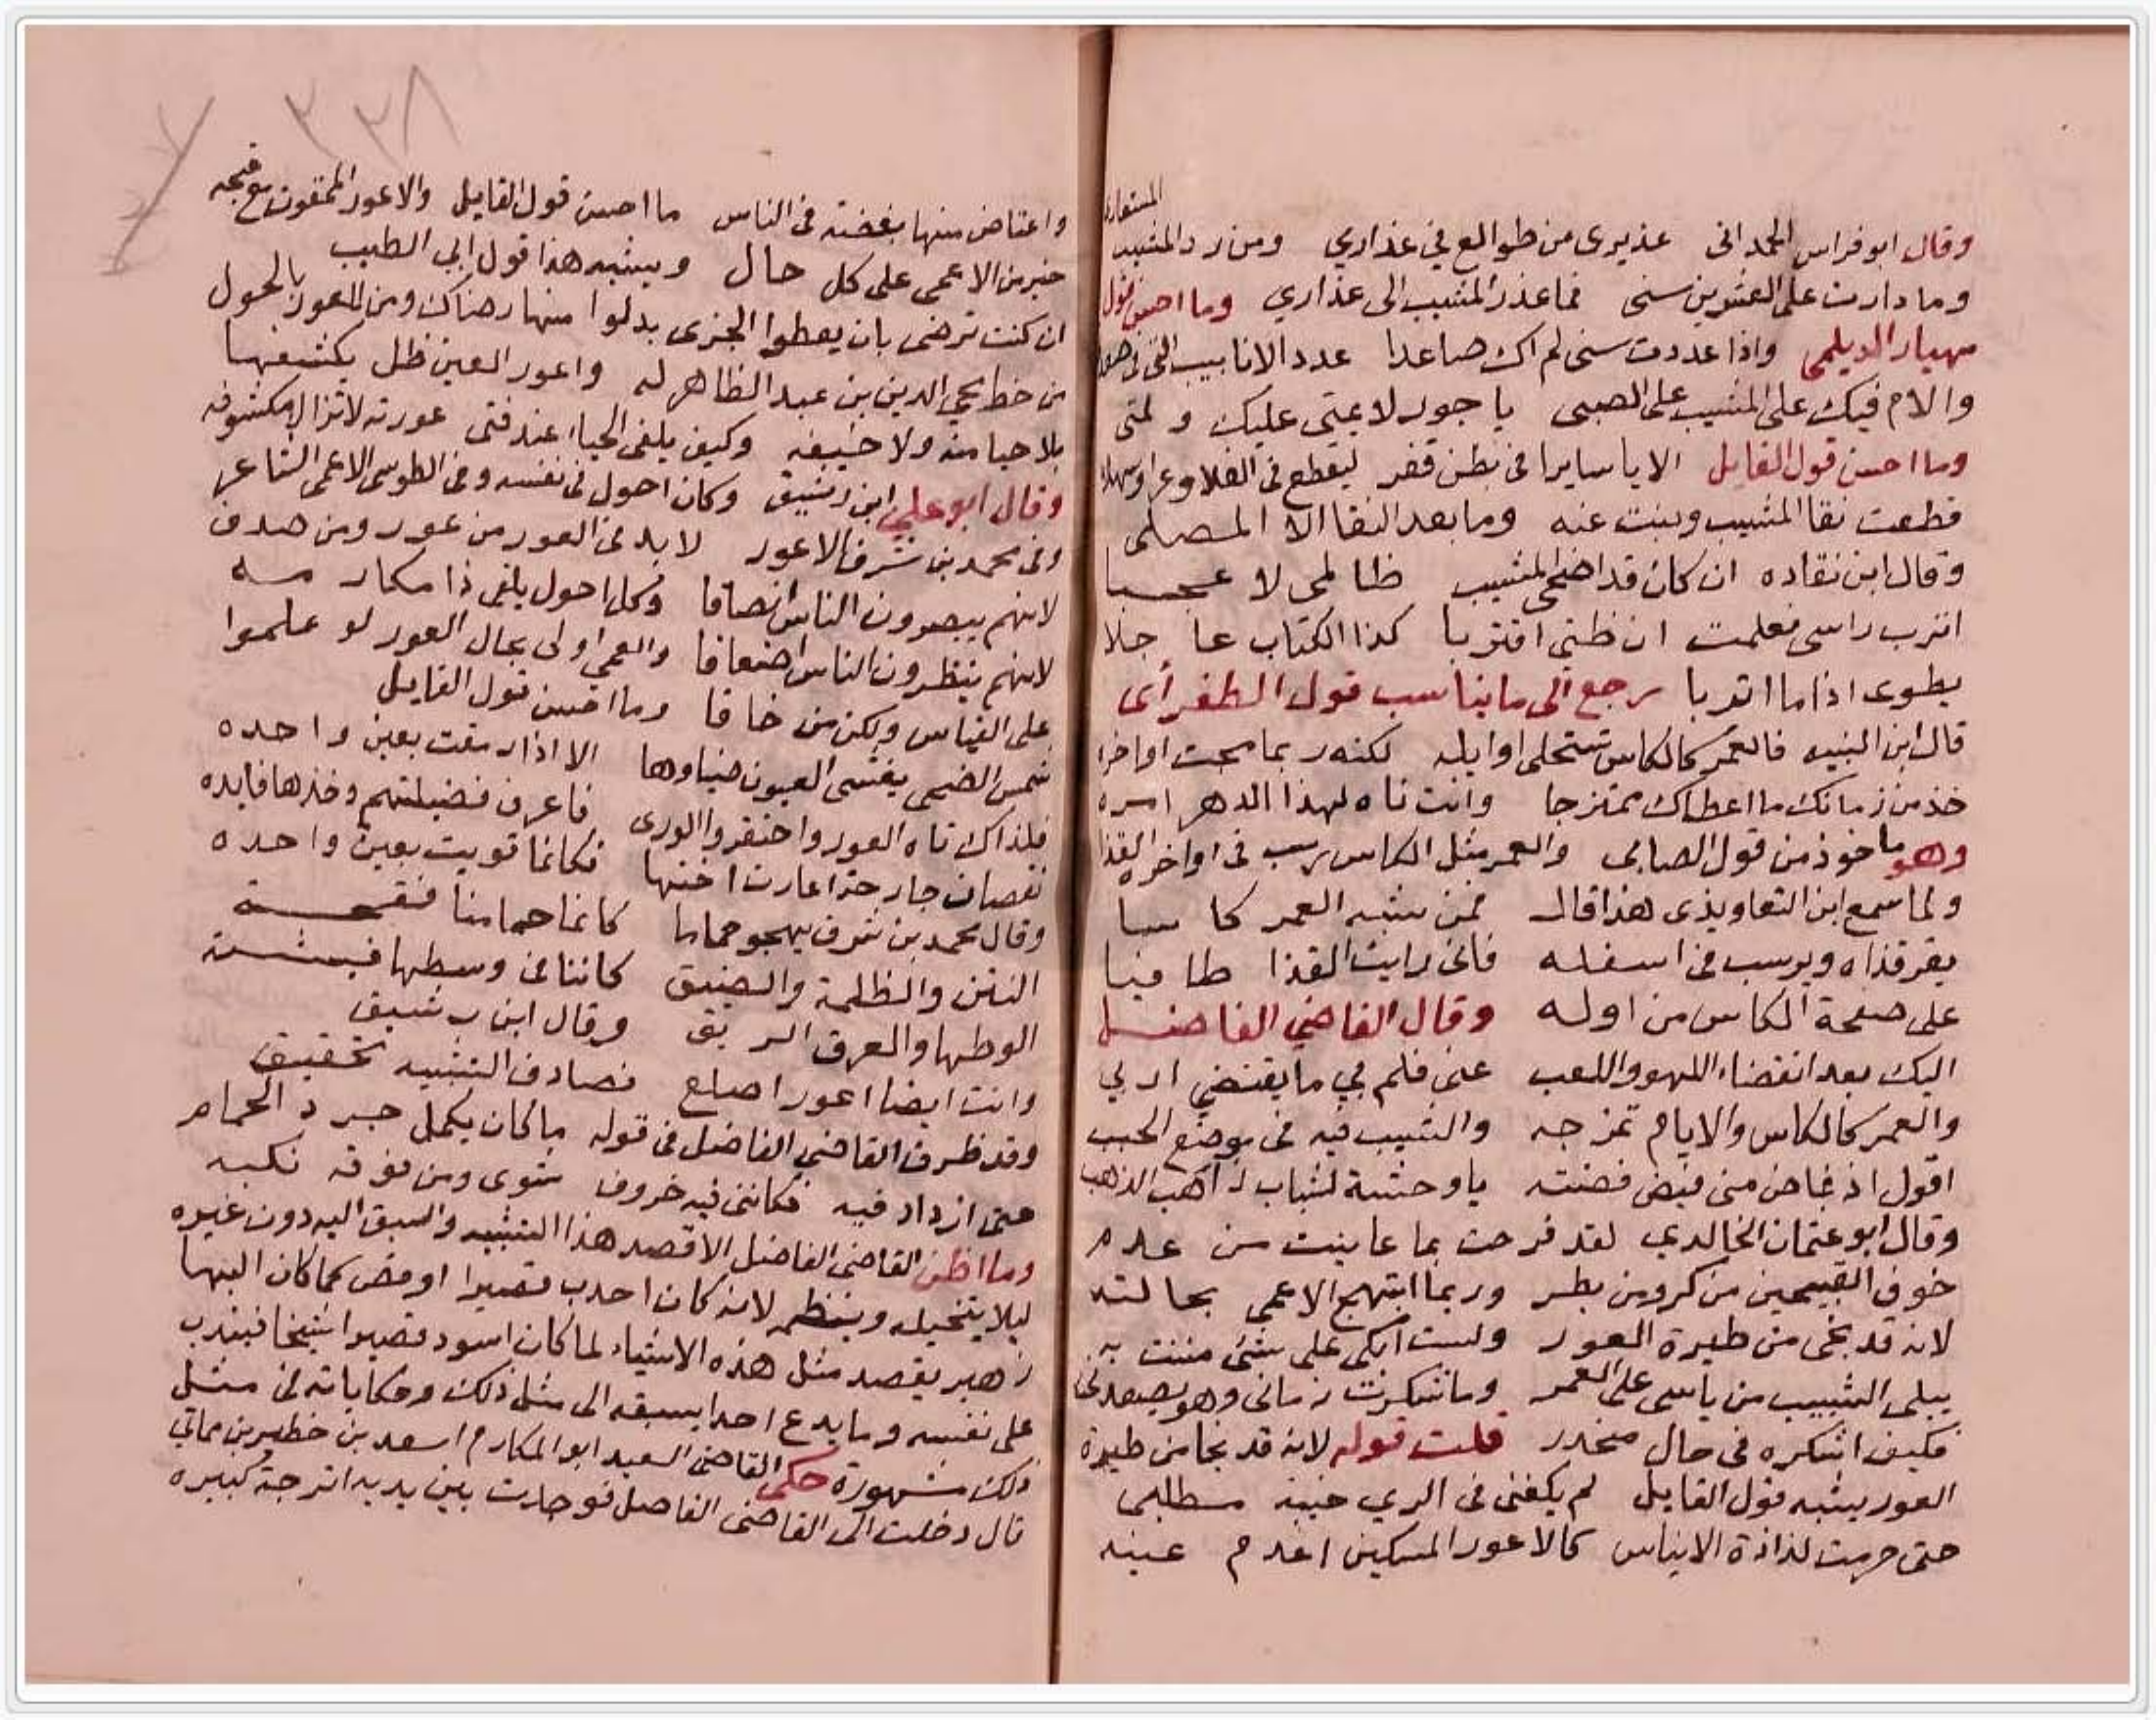 المستعار
وقال ابو فراس الحمدانى عذيرى من طوالع في عذاري ومن رد المشيب
وما دارت على العشرين سنى فما عذر المشيب الى عذاري وما احسن قول
مهيار الديلمى واذا عددت سنى لم اك صاعدا عدد الانابيب التى فى صعد
والام فيك على المشيب على الصبى يا جور لايمتى عليك ولمتى
وما احسن قول القايل الا يا سايرا فى بطن قفر ليقطع فى الفلا وعرا وسهلا
قطعت نقا المشيب وبنت عنه وما بعد النقا الا المصلى
وقال ابن نقاده ان كان قد اضحى المشيب ظالمى لا عجبا
اترب راسى فعلمت ان ظنى اقتربا كذا الكتاب عاجلا
يطوى اذا ما اتربا رجع الى ما يناسب قول الطغرأى
قال ابن النبيه فالعمر كالكاس تستحلى اوايله لكنه ربما مجت اواخرا
خذ من زمانك ما اعطاك ممتزجا وانت ناه لهذا الدهر امره
وهو ماخوذ من قول الصابى والعمر مثل الكاس يرسب فى اواخره القذا
ولما سمع ابن التعاويذى هذا قال فمن شبه العمر كاسا
يقر قذاه ويرسب فى اسفله فانى رايت القذا طافيا
على صفحة الكاس من اوله وقال القاضي الفاضل
اليك بعد انقضاء اللهو واللعب عنى فلم في ما يقتضي اربي
والعمر كالكاس والايام تمزجه والشيب فيه فى موضع الحبب
اقول اذ غاض منى فيض فضته يا وحشة لشباب ذاهب الذهب
وقال ابو عثمان الخالدي لقد فرحت بما عاينت من عدم
خوف القبيحين من كبر ومن بطر وربما ابتهج الاعمى بحالته
لانه قد نجى من طيرة العور ولست ابكى على شئ مننت به
يبلى الشبيب من ياسى على العمر وما شكرت زمانى وهو يصعدنى
فكيف اشكره فى حال منحدر قلت قوله لانه قد نجا من طيرة
العور يشبه قول القايل لم يكفنى فى الري خيبة مطلبى
حتى حرمت لذاذة الايناس كالاعور المسكين اعدم عينه
٢٢٨
واعتاض منها بغضته فى الناس ما احسن قول القايل والاعور الممقوت مع قبحه
خير من الاعمى على كل حال ويشبه هذا قول ابي الطيب
ان كنت ترضى بان يعطوا الجزى بدلوا منها رضاك ومن للعور بالحول
من خط محي الدين بن عبد الظاهر له واعور العين ظل يكشفها
بلا حيا منه ولا خيفه وكيف يلقى الحيا عند فتى عورته لا تزال مكشوفه
وقال ابو على ابن رشيق وكان احول فى نفسه وفى الطوسى الاعمى الشاعر
وفى محمد بن شرف الاعور لا بد فى العور من عور ومن صلف
لانهم يبصرون الناس انصافا وكل احول يلقى ذا مكارمه
لانهم ينظرون الناس اضعافا والعمى اولى بحال العور لو علموا
على القياس ولكن من خافا وما احسن قول القايل
شمس الضحى يغشى العيون ضياوها الا اذا رمقت بعين واحده
فلذاك تاه العور واحتقروا الورى فاعرف فضيلتهم وخذها فايده
نقصان جارحة اعارت اختها فكانما قويت بعين واحده
وقال محمد بن شرف يهجو حماما كانما حمامنا فقحة
النتن والظلمة والضيق كاننا فى وسطها فيشة
الوطها والعرق الريق وقال ابن رشيق
وانت ايضا اعور اصلع فصادف التشبيه تحقيق
وقد ظرف القاضي الفاضل فى قوله ما كان يكمل حر د الحمام
حتى ازداد فيه فكاننى فيه خروف شوى ومن فوقه نكبه
وما اظن القاضى الفاضل الا قصد هذا التشبيه والسبق اليه دون غيره
ليلا يتخيله وينظر لانه كان احدب قصيرا اوقص كما كان البها
زهير يقصد مثل هذه الاشياء لما كان اسود قصيرا شيخا فيندب
على نفسه وما يدع احدا يسبقه الى مثل ذلك وحكاياته فى مثل
ذلك مشهورة حكى القاضى السعيد ابو المكارم اسعد بن خطير بن مماتي
قال دخلت الى القاضى الفاضل فوجدت بين يديه اترجة كبيره